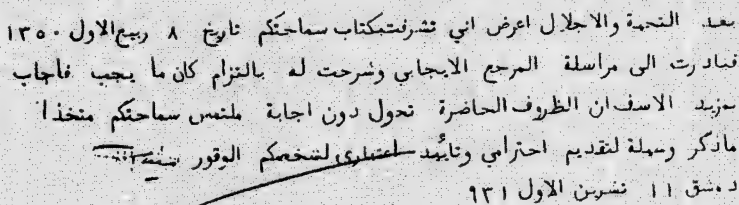 بعد التحية والاجلال اعرض اني تشرفت بكتاب سماحتكم تاريخ ٨ ربيع الاول ١٣٥٠
فبادرت الى مراسلة المرجع الايجابي وشرحت له بالتزام كان ما يجب فاجاب
بمزيد الاسف ان الظروف الحاضرة تحول دون اجابة ملتمس سماحتكم متخذا
ماذكر وسيلة لتقديم احترامي وتأييد اعتباري لشخصكم الوقور
دمشق ١١ تشرين الاول ٩٣١